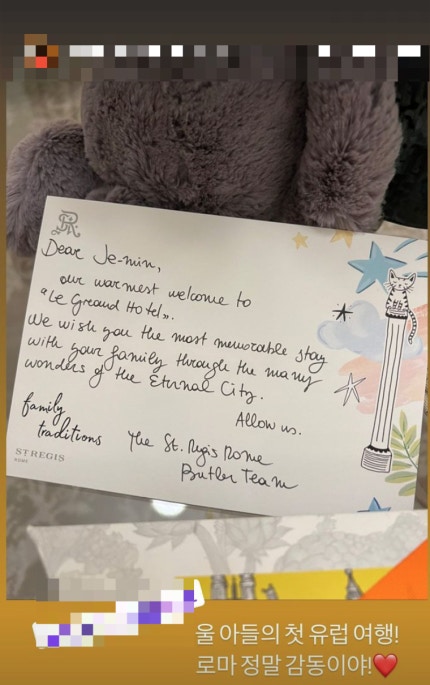 Dear Je-min,
our warmest welcome to
"Le Greand Hotel".
We wish you the most memorable stay
with your family through the many
wonders of the Eternal City.
Allow us.
family
traditions
The St. Regis Rome
Butler Team
ST REGIS
ROME
울 아들의 첫 유럽 여행!
로마 정말 감동이야!❤️